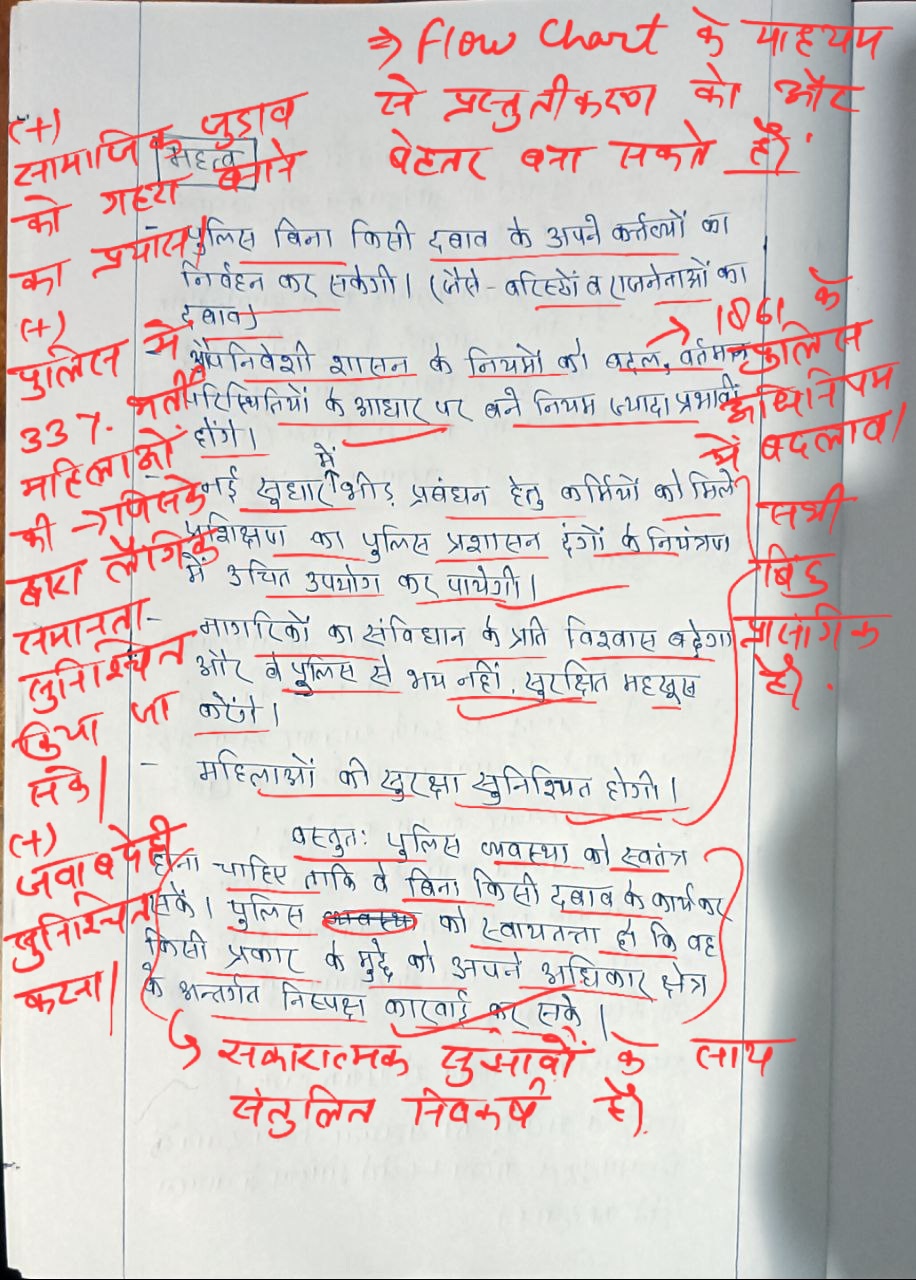 ⇒ Flow Chart के माध्यम
से प्रस्तुतीकरण को और
बेहतर बना सकते हैं।
(+)
सामाजिक जुड़ाव
को गहरा बनाने
का प्रयास।
(+)
पुलिस में
33% भर्ती
महिलाओं
की → जिसके
द्वारा लैंगिक
समानता
सुनिश्चित
किया जा
सके।
(+)
जवाबदेही
सुनिश्चित
करना।
महत्व
- पुलिस बिना किसी दबाव के अपने कर्तव्यों का
निर्वहन कर सकेगी। (जैसे - वरिष्ठों व राजनेताओं का
दबाव)
- औपनिवेशी शासन के नियमों को बदल, वर्तमान
परिस्थितियों के आधार पर बने नियम ज्यादा प्रभावी
होंगे।
- नई सुधार में भीड़ प्रबंधन हेतु कर्मियों को मिले
प्रशिक्षण का पुलिस प्रशासन दंगों के नियंत्रण
में उचित उपयोग कर पायेगी।
- नागरिकों का संविधान के प्रति विश्वास बढ़ेगा
और वे पुलिस से भय नहीं, सुरक्षित महसूस
करेंगे।
- महिलाओं की सुरक्षा सुनिश्चित होगी।
वस्तुतः पुलिस व्यवस्था को स्वतंत्र
होना चाहिए ताकि वे बिना किसी दबाव के कार्य कर
सकें। पुलिस व्यवस्था को स्वायतत्ता हो कि वह
किसी प्रकार के मुद्दे को अपने अधिकार क्षेत्र
के अन्तर्गत निस्पक्ष कारवाई कर सके।
→ 1861 के
पुलिस
अधिनियम
में बदलाव।
सभी
बिंदु
प्रासंगिक
है।
→ सकारात्मक सुझावों के साथ
संतुलित निष्कर्ष है।